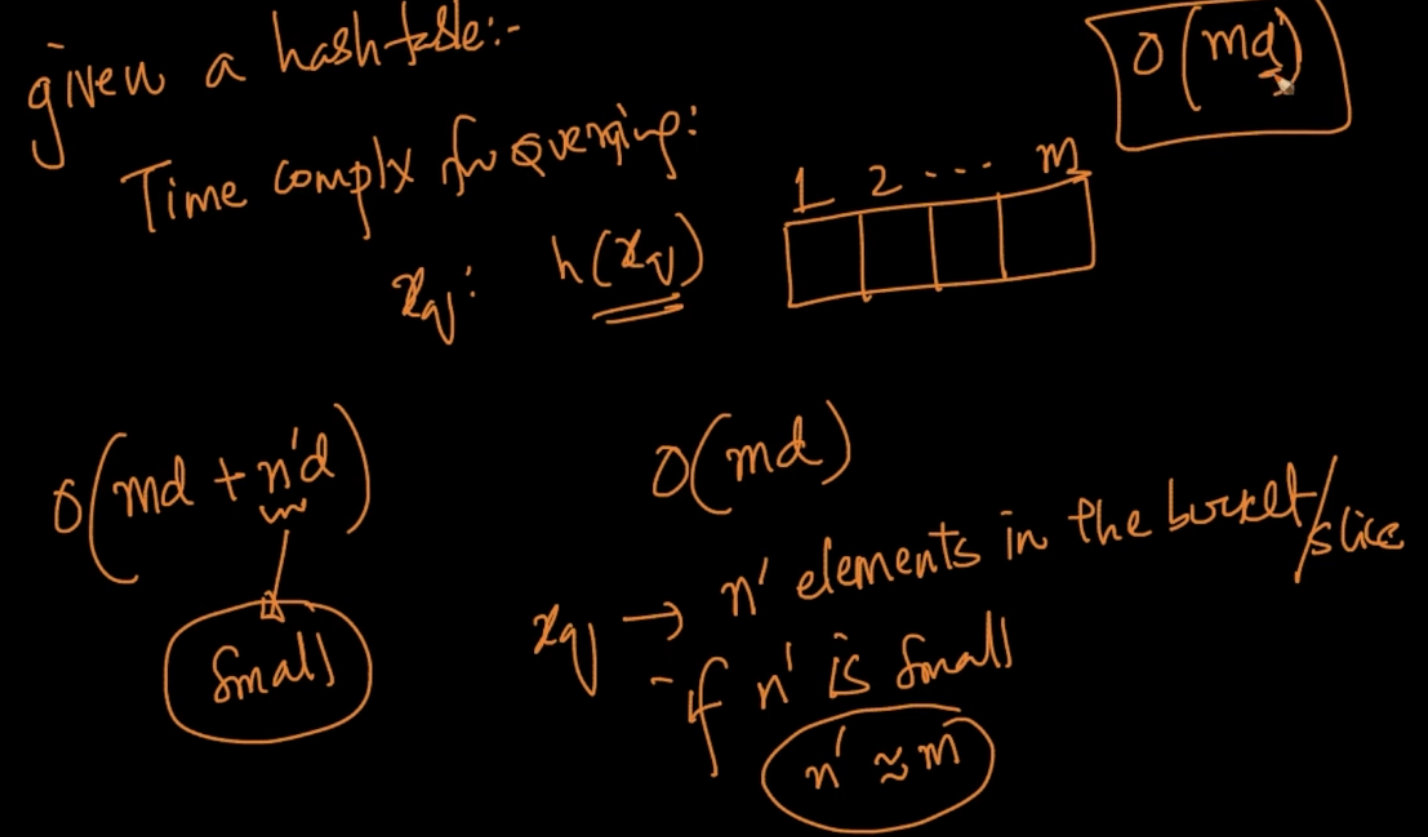 given a hash table:-
O(md)
Time complx for Querying:
xq: h(xq)
1 2 ... m
O(md + n'd)
small
O(md)
xq → n' elements in the bucket/slice
- if n' is small
n' ≈ m